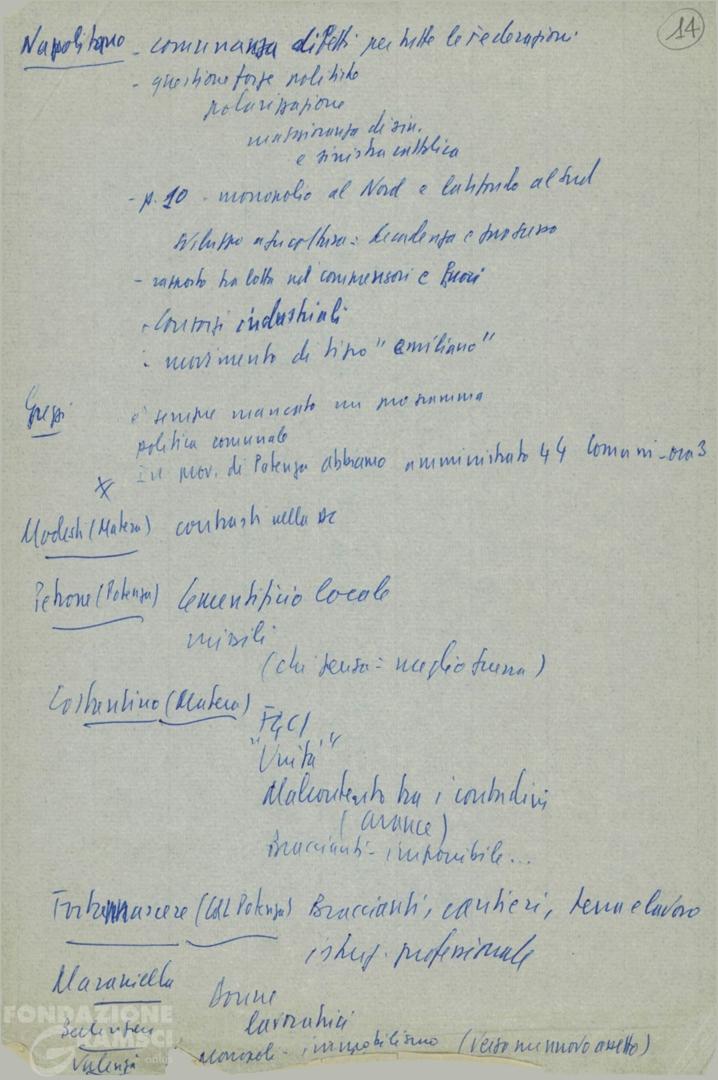 14
Napolitano - comunanza difetti per tutte le Federazioni
- questione forze politiche
polarizzazione
maggioranza di sin.
e sinistra cattolica
- p. 10 - monopolio al Nord e latifondo al Sud
sviluppo agricoltura: decadenza e progresso
- rapporto tra lotta nei comprensori e fuori
- Consorzi industriali
- movimento di tipo "emiliano"
è sempre mancato un programma
politica comunale
In prov. di Potenza abbiamo amministrato 44 Comuni - ora 3
Modesti (Matera) contrasti nella DC
Petrone (Potenza) Cementificio locale
missili
(chi pensa: meglio guerra)
Costantino (Matera)
FGCI
"Unità"
Malcontento tra i contadini
(arance)
Braccianti - imponibile...
(CdL Potenza) Braccianti, cantieri, terra e lavoro
istruz. professionale
Maraniella Donne
lavoratrici
Valenza Monopoli - immobilismo (verso un nuovo assetto)
FONDAZIONE
GRAMSCI
onlus